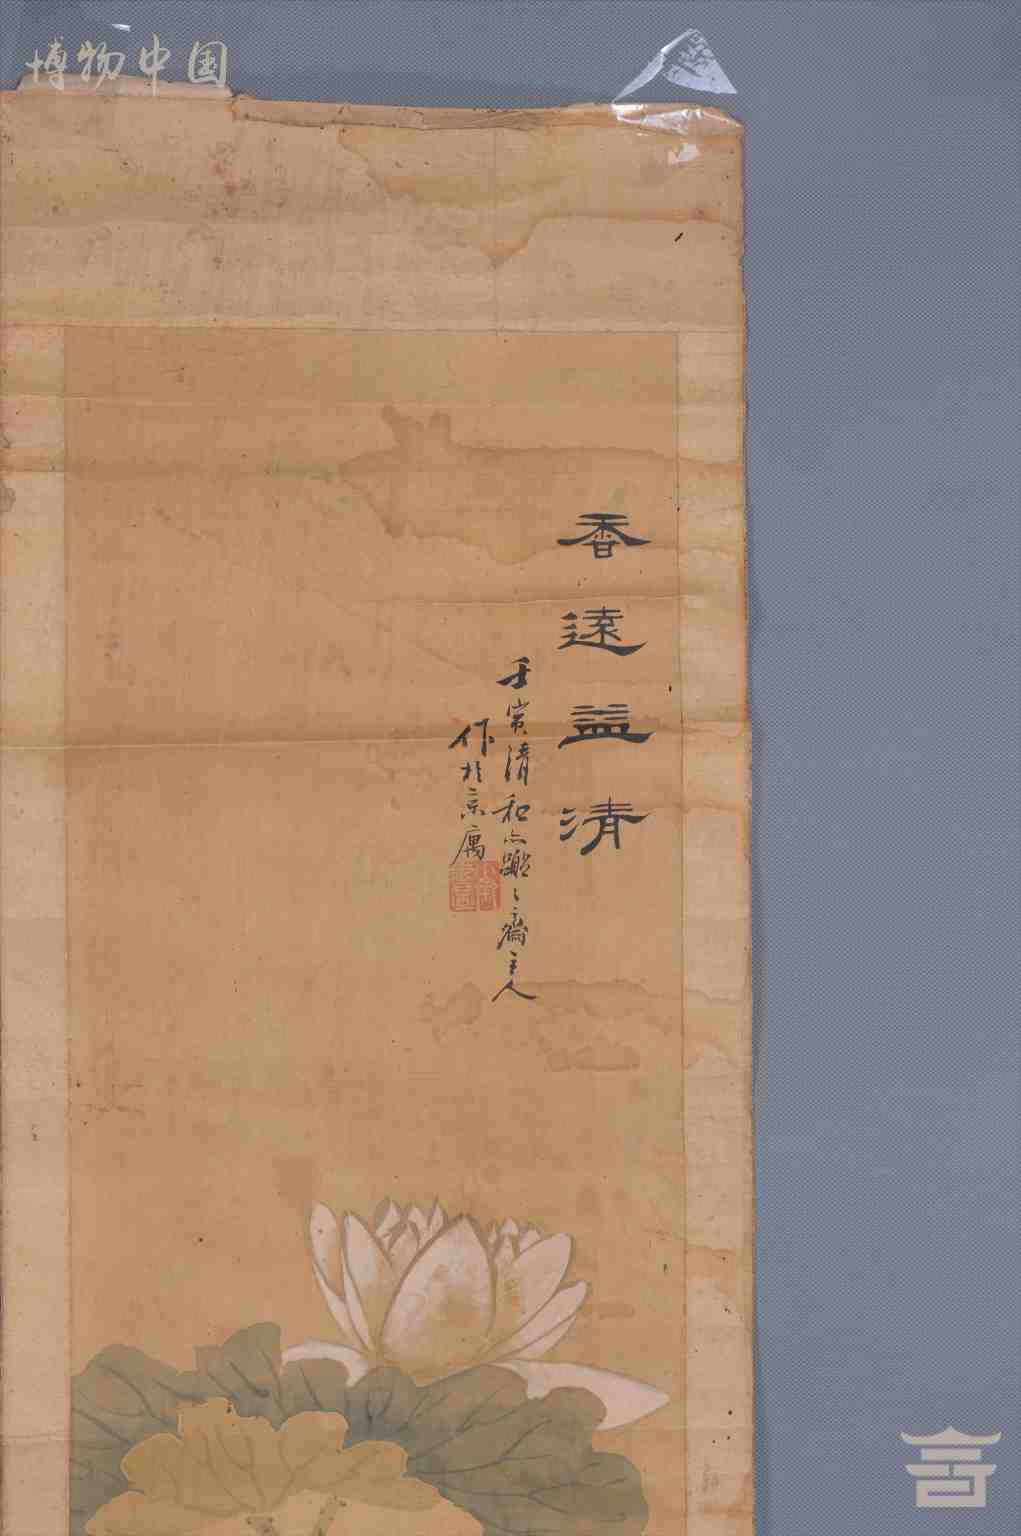 博物中国
香遠益清
壬寅清和
齋主人
作於京寓